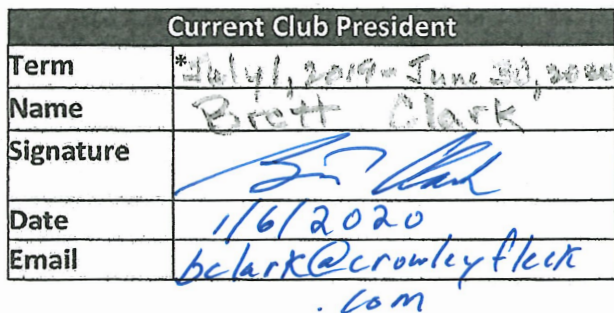 Current Club President
Term *July 1, 2019 - June 30, 2020
Name Brett Clark
Signature Brett Clark
Date 1/6/2020
Email bclark@crowleyfleck
.com